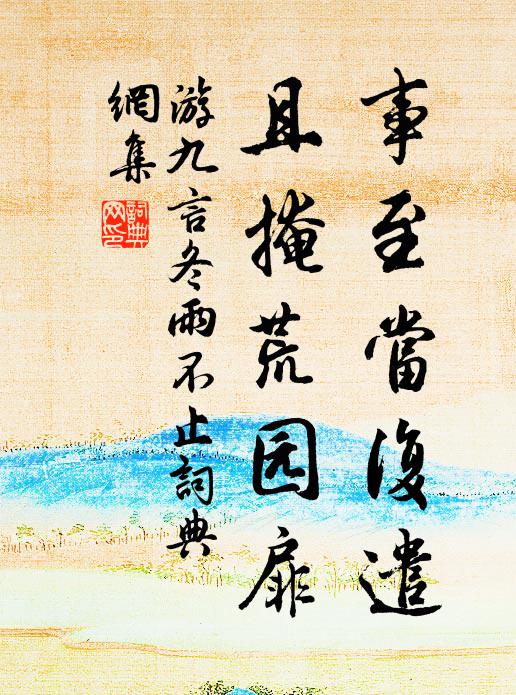 事至當復遣
且掩荒园扉
游九言冬雨不止詞典
網集
詞典
网印